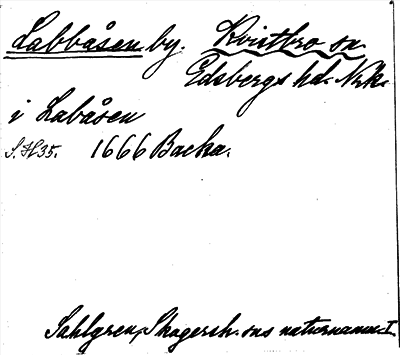 Labbåsen by. Kvistbro sn.
Edsbergs hd. Nrk.
i Labåsen
S. H 35. 1666 Backa.
Sahlgren, Skagersh. sns naturnamn I